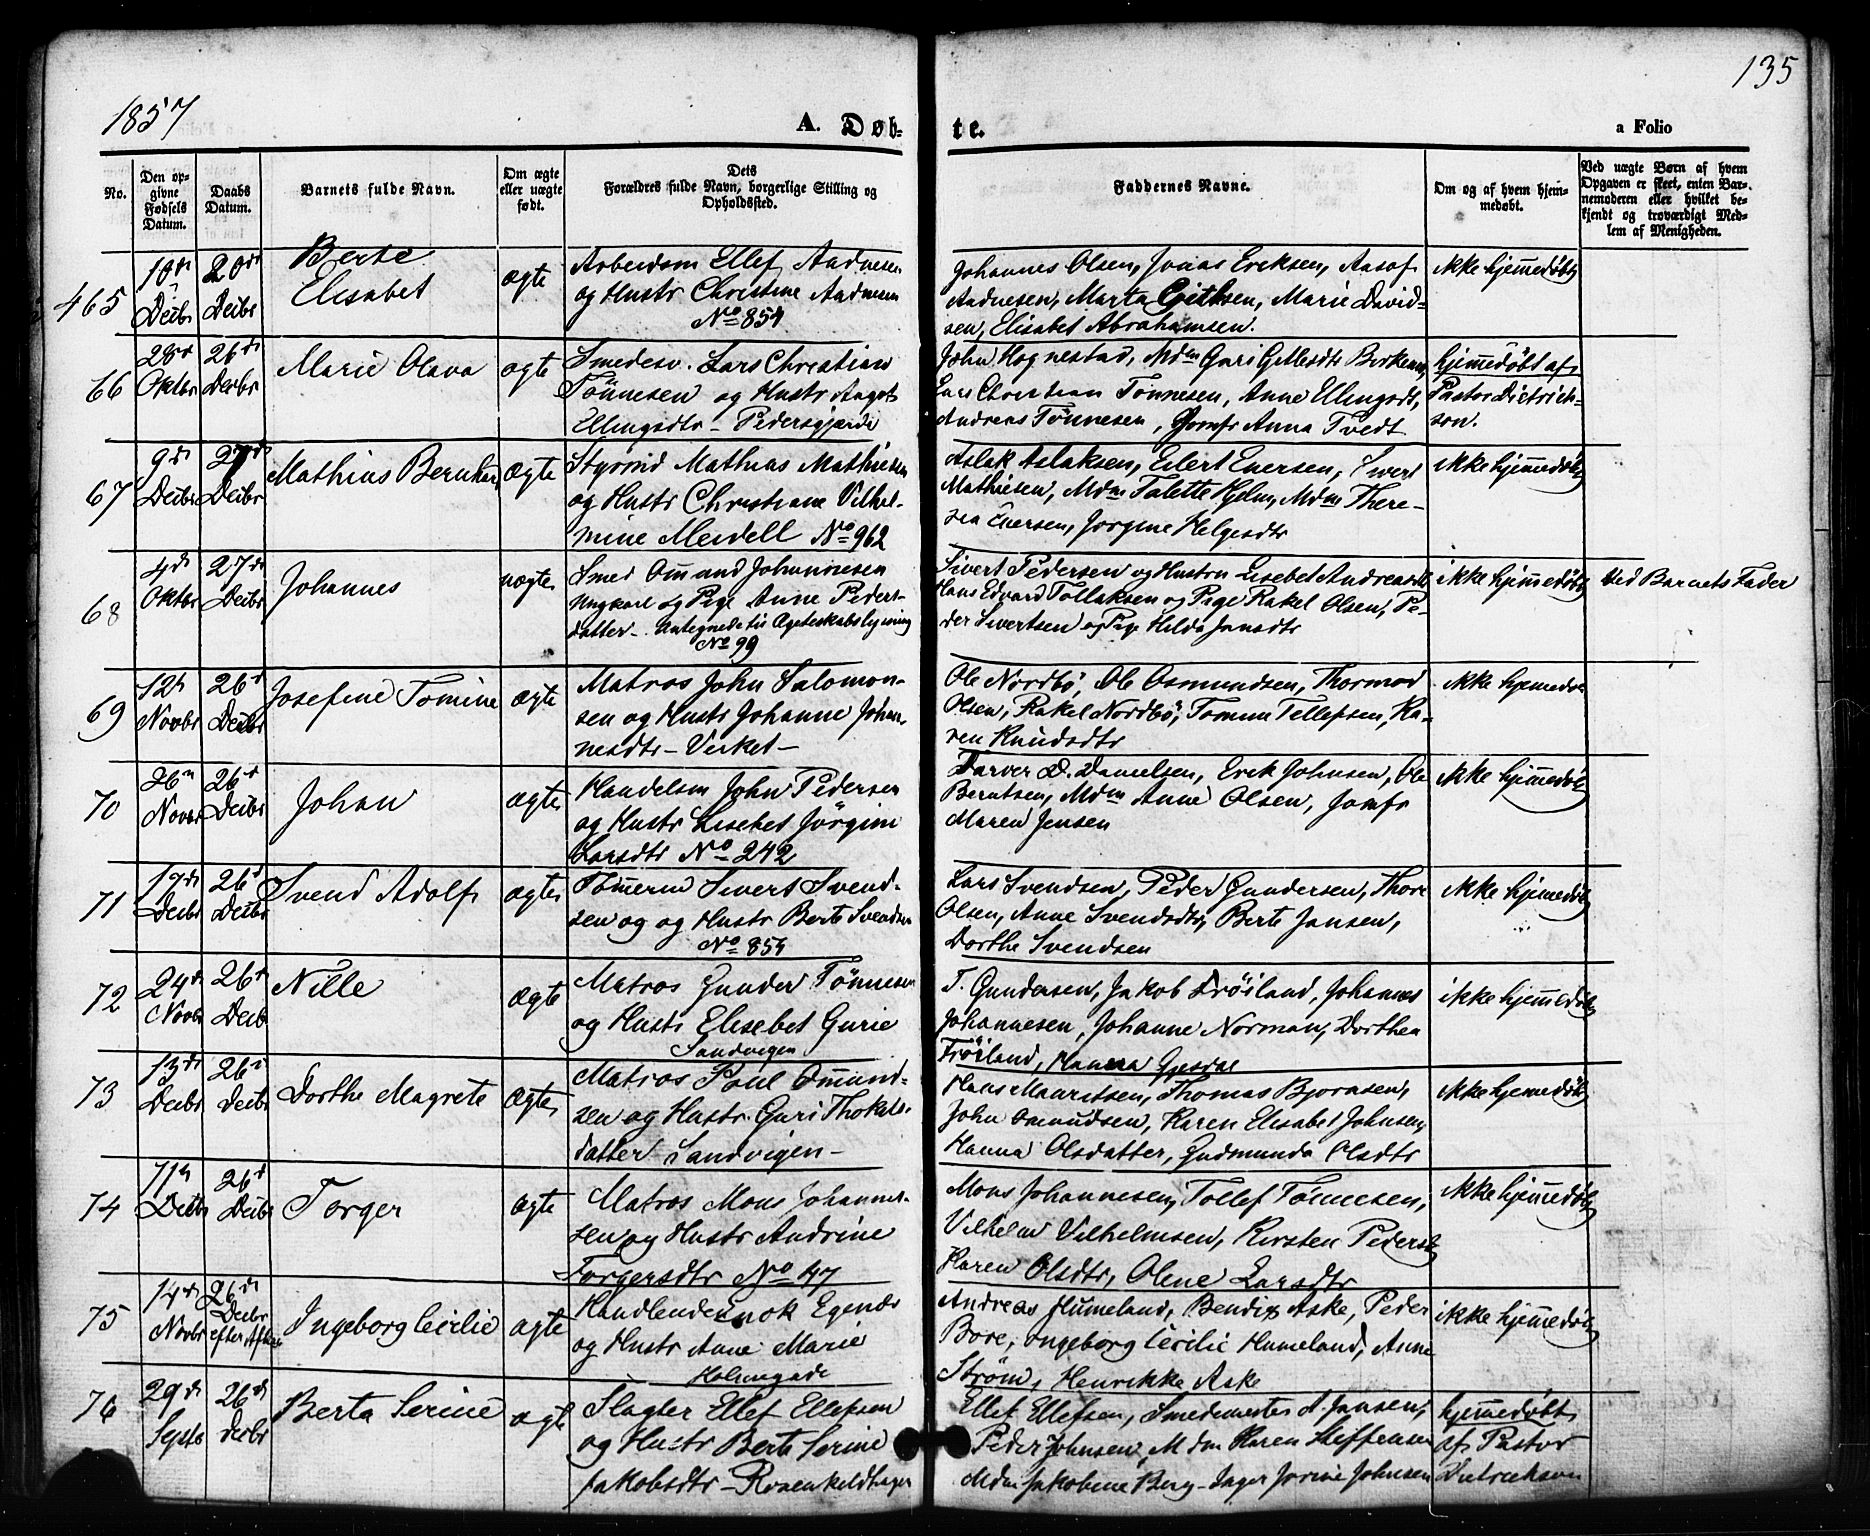 1857
135
A. Døb-
te.
a Folio
No.
Den op-
givne
Fødsels
Datum.
Daabs
Datum.
Barnets fulde Navn.
Om ægte
eller uægte
født.
Dets
Forældres fulde Navn, borgerlige Stilling og
Opholdssted.
Faddernes Navne.
Om og af hvem hjem-
medøbt.
Ved uægte Børn af hvem
Opgaven er skeet, enten Bar-
nemoderen eller hvilket be-
kjendt og troværdigt Med-
lem af Menigheden.
465
10de
Decbr
20de
Decbr
Berte
Elisabet
ægte
Arbeidsm Ellef Aadnesen
og Hustr Christine Aadnesen
No 854
Johannes Olsen, Jonas Eriksen, Aasof
Aadnesen, Marta Erichsen, Marie David-
sen, Elisabet Abrahamsen.
ikke hjemmedøbt
66
28de
Oktbr
26de
Decbr
Marie Olava
ægte
Smedesv. Lars Christian
Tönnesen og Hustr Aagot
Ellingsdtr - Pedersgjærde
John Hognestad, Mdm Guri Birkeum,
Lars Christian Tönnesen, Anne Ellingsdt,
Andreas Tönnesen, Jomfr Anna Tvedt
hjemmedøbt af
Pastor Dietrich-
son.
67
9de
Decbr
27de
Decbr
Mathias Bernhard
ægte
Styrmd Mathias Mathiesen
og Hustr Christiane Vilhel-
mine Meidell No 962
Aslak Aslaksen, Eilert Eversen, Sivert
Mathiesen, Mdm Talette Hjelm, Mdm There-
sea Eversen, Jorgine Helgesdtr
ikke hjemmedøbt
68
4de
Oktbr
27de
Decbr
Johannes
uægte
Smed Omund Johannesen
Ungkarl og Pige Anne Peders-
datter - Antegnede til Ægteskabslysning
No 99
Sivert Pedersen og Hustru Lisebet Andreasdt
Hans Edvard Tollaksen og Pige Rakel Olsen, Pe-
der Sivertsen og Pige Hilda Jansdtr
ikke hjemmedøbt
Ved Barnets Fader
69
12te
Novbr
26de
Decbr
Josefine Tomine
ægte
Matros John Salomon-
sen og Hustr Johanne Johan-
nesdtr - Verket -
Ole Nordbö, Ole Osmundsen, Thormod
Olsen, Rakel Nordbö, Tomine Tellefsen, Ka-
ren Knudsdtr
ikke hjemmedøbt
70
26de
Novbr
26de
Decbr
Johan
ægte
Handelsm John Pedersen
og Hustr Lisebet Jörgine
Larsdtr No 242
Farver D. Danielsen, Erik Johnsen, Ole
Berntsen, Mdm Anne Olsen, Jomfr
Maren Jensen
ikke hjemmedøbt
71
17de
Decbr
26de
Decbr
Svend Adolf
ægte
Tömmermd Sivert Svend-
sen og og Hustr Berte Svendsen
No 854
Lars Svendsen, Peder Gundersen, Thore
Olsen, Anne Svendsdtr, Berte Jansen,
Dorthe Svendsen
ikke hjemmedøbt
72
24de
Novbr
26de
Decbr
Nille
ægte
Matros Gunder Tönnesen
og Hustr Elisebet Gurie
Sandvigen
T. Gundersen, Jakob Fröiland, Johannes
Johannesen, Johanne Norman, Dorthea
Fröiland, Hanna Gjesdal
ikke hjemmedøbt
73
13de
Decbr
26de
Decbr
Dorthe Magrete
ægte
Matros Poul Omund-
sen og Hustr. Guri Thokels-
datter Sandvigen -
Hans Mauritsen, Thomas Bjornsen,
John Omundsen, Karen Elisabet Johnsen,
Hanna Olsdatter, Gudmunda Olsdtr
ikke hjemmedøbt
74
11te
Decbr
26de
Decbr
Torger
ægte
Matros Mons Johannes-
sen og Hustr Andrine
Torgersdtr No 47
Mons Johannesen, Tollef Tönnesen,
Vilhelm Vilhelmsen, Kirsten Pedersdt,
Karen Olsdtr, Olene Larsdtr
ikke hjemmedøbt
75
14de
Novbr
26de
Decbr
efter Aftens
Ingeborg Cecilie
ægte
Handlende Enok Egenæs
og Hustr Anne Marie
Holmegade
Andreas Humeland, Bendix Aske, Peder
Bore, Ingeborg Cecilie Humeland, Anne
Ström, Henrikke Aske
ikke hjemmedøbt
76
29de
Septbr
26de
Decbr
Berta Serine
ægte
Slagter Ellef Ellefsen
og Hustr Berte Serine
Jakobsdtr - Rosenkildehagen
Ellef Ellefsen, Smedemester A. Jansen,
Peder Johnsen, Mdm Karen Steffensen
Mdm Jakobine Berg - Inger Jorine Johnsen
hjemmedøbt
af Pastor
Dietrichson